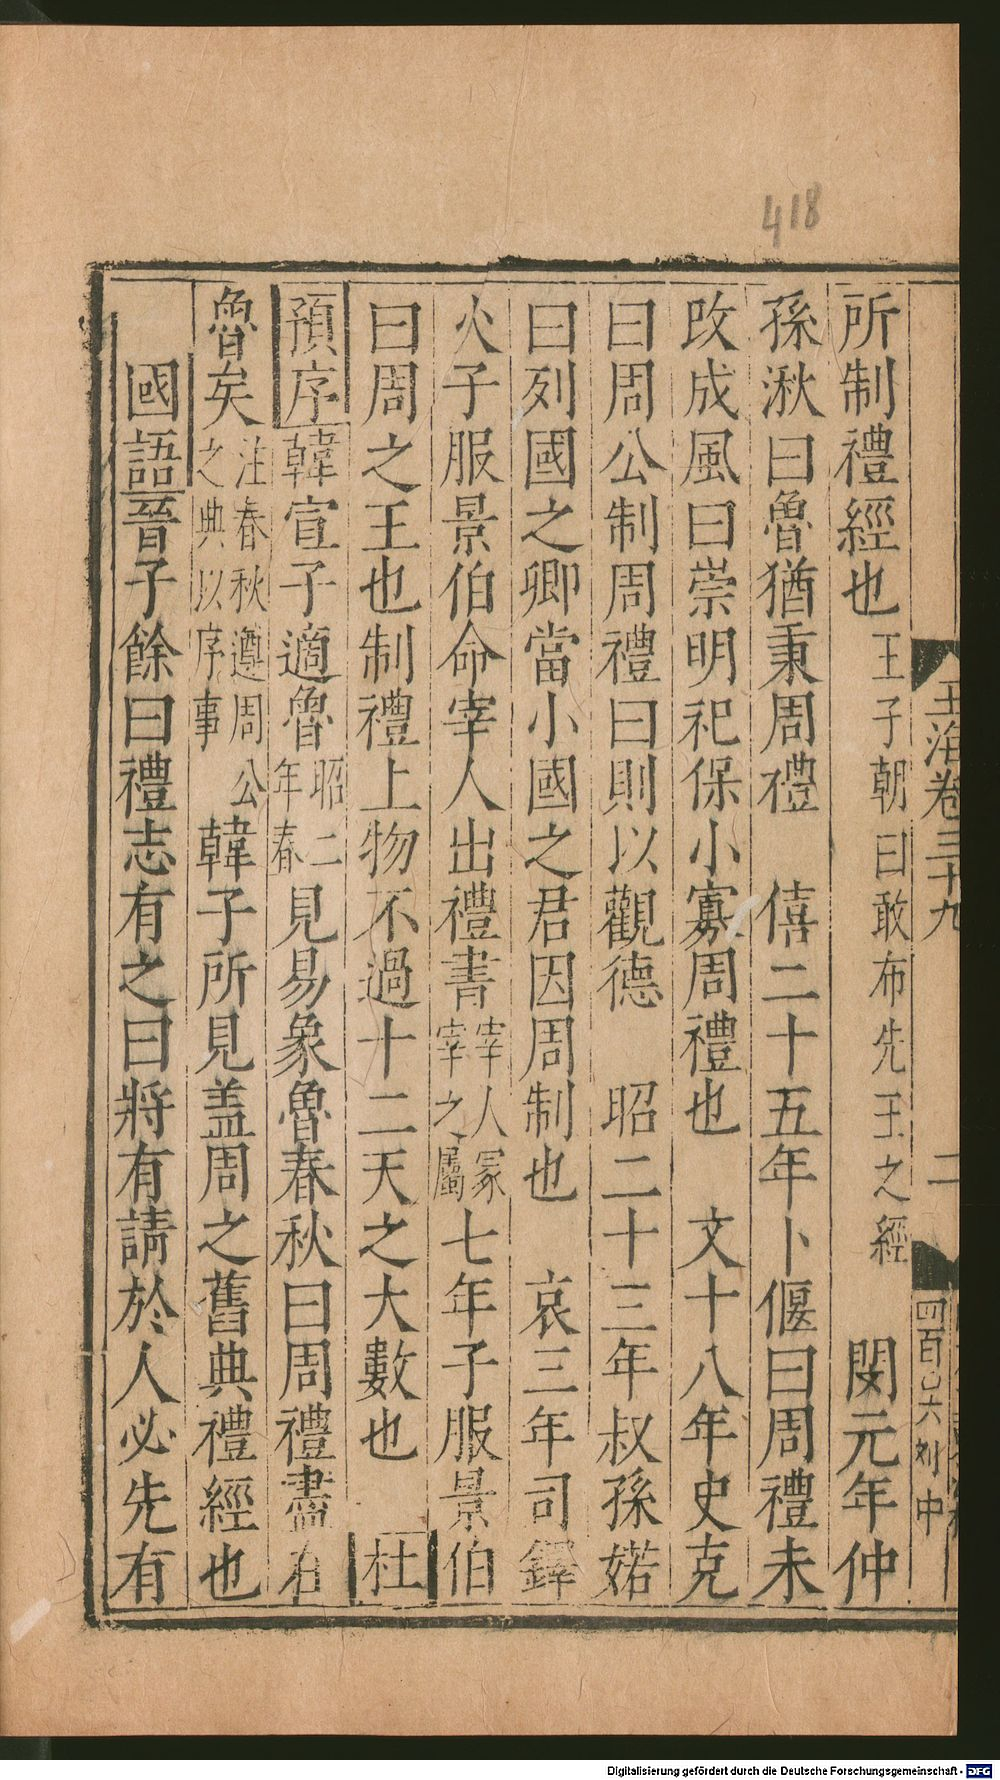 418
所制禮經也王子朝曰敢布先王之經　閔元年仲
孫湫曰魯猶秉周禮　僖二十五年卜偃曰周禮未
改成風曰崇明祀保小寡周禮也　文十八年史克
曰周公制周禮曰則以觀德　昭二十三年叔孫婼
曰列國之卿當小國之君因周制也　哀三年司鐸
火子服景伯命宰人出禮書宰人冢宰之屬七年子服景伯
曰周之王也制禮上物不過十二天之大數也　杜
預序韓宣子適魯昭二年春見易象魯春秋曰周禮盡在
魯矣注春秋遵周公之典以序事韓子所見盖周之舊典禮經也
國語晉子餘曰禮志有之曰將有請於人必先有
玉海卷三十九
二
四百〇六
中
Digitalisierung gefördert durch die Deutsche Forschungsgemeinschaft - DFG